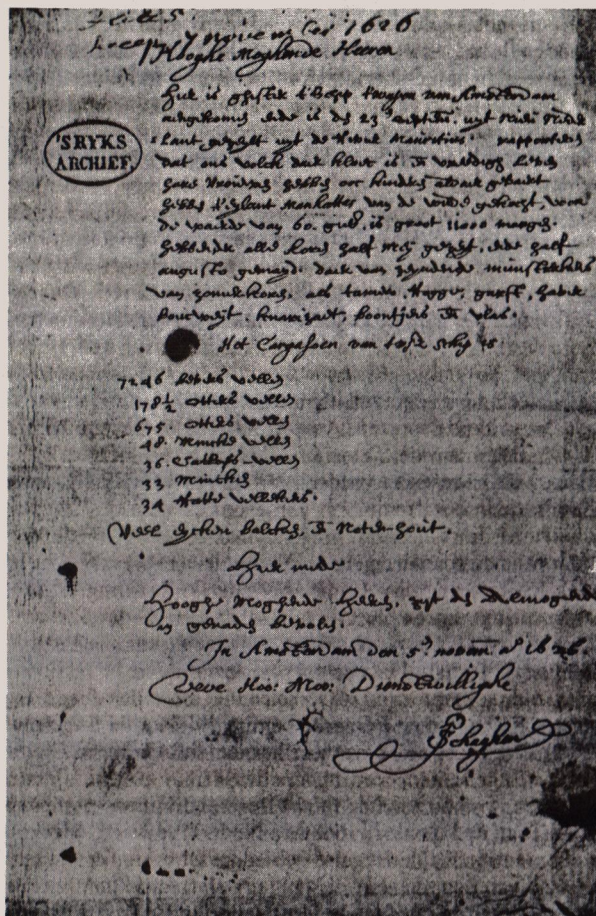 Recep. 7 novemb 1626
Hooghe Moghende Heeren
'SRYKS
ARCHIEF.
hier is ghister t'schip t'wapen van Amsterdam
aengekomen ende is den 23en septem. uyt Nieu Neder
Lant gezeylt uyt de Rivier Mauritius. rapporteren
dat ons volck daer kloec is en vreedigh leven
hare Vrouwen hebben ooc kinders aldaer gebaert
hebben t'eylant Manhattes van de wilde gekocht, voor
de waerde van 60. guld. is groot 11000 morgen.
hebbende alle koren half mey gezeyt, ende half
augusto gemayd. daer van zeyndende munsterkens
van zomerkoren, als tarruw, Rogge, garst, haver
boucweyt, knarizaet, boontjens en vlas.
Het Cargasoen van tsz schip is
7246 bevers vellen
178½ otters vellen
675. otters vellen
48. Mincke vellen
36. Catlos-vellen
33 Mincken
34 Ratte vellekens.
Veel eycken balcken, en Noten-hout.
hier mede
Hooghe Moghende Heeren, zyt den Almogende
in genaden bevolen.
In Amsterdam den 5en novem. ao 1626.
Uwe Hoo: Moo: Dienstwillighe
P Schaghen